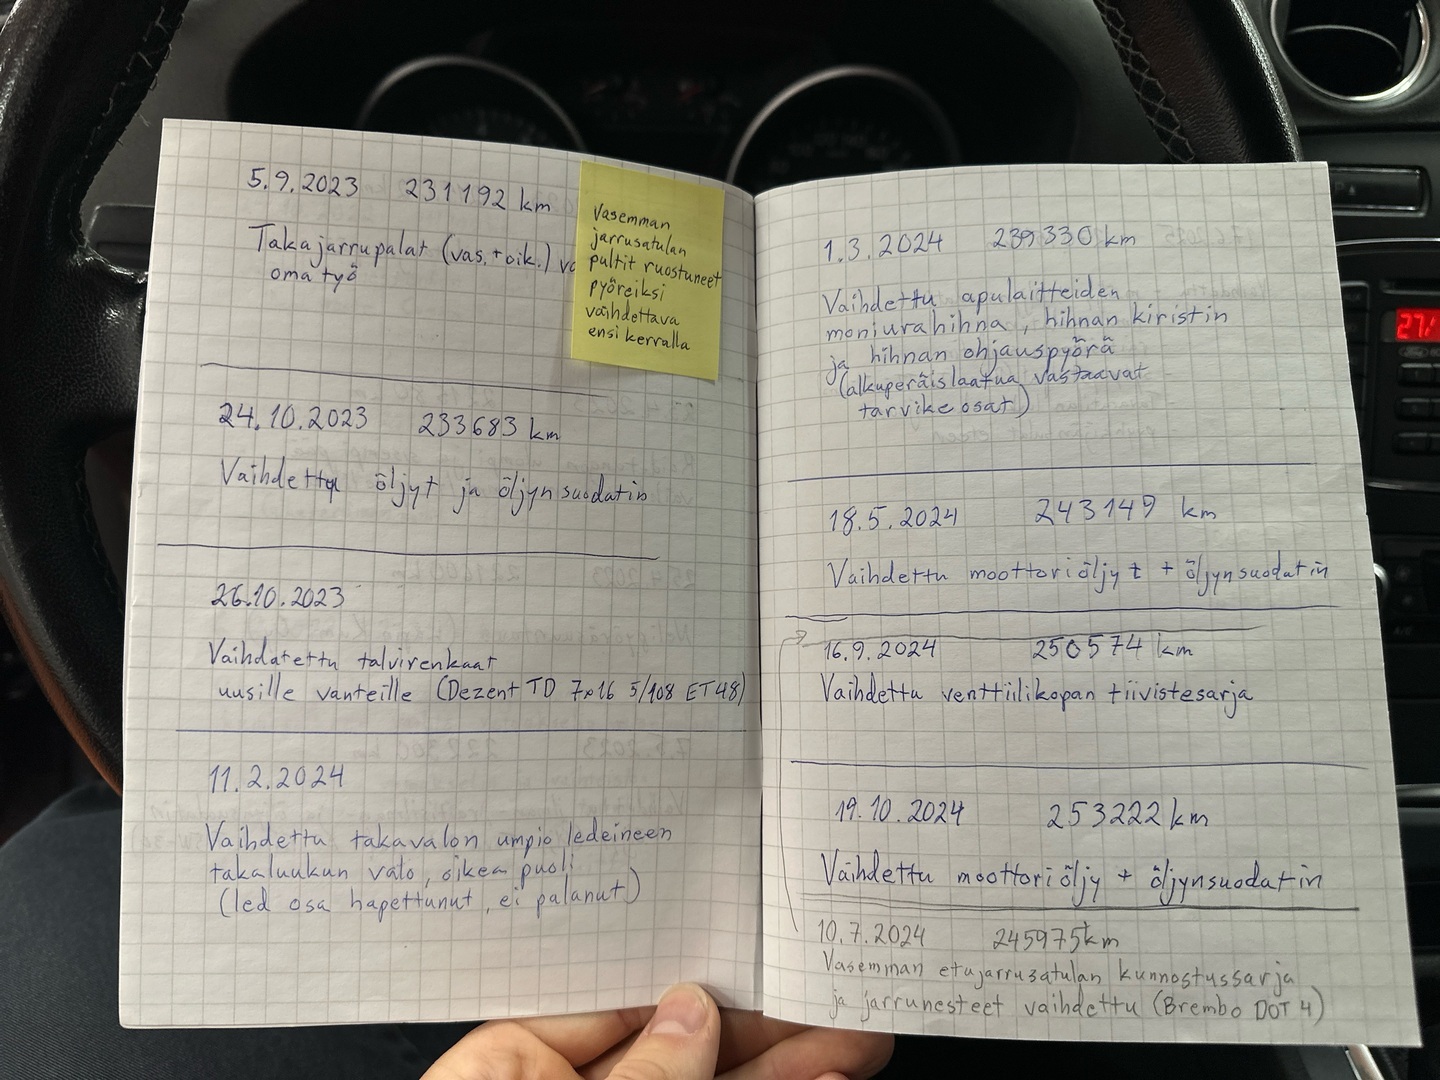 5.9.2023 231192 km
Takajarrupalat (vas.+oik.)
oma työ
Vasemman
jarrusatulan
pultit ruostuneet
pyöreiksi
vaihdettava
ensi kerralla
24.10.2023 233683 km
Vaihdettu öljyt ja öljynsuodatin
26.10.2023
Vaihdatettu talvirenkaat
uusille vanteille (Dezent TD 7x16 5/108 ET48)
11.2.2024
Vaihdettu takavalon umpio ledeineen
takaluukun valo, oikea puoli
(led osa hapettunut, ei palanut)
1.3.2024 239330 km
Vaihdettu apulaitteiden
moniurahihna, hihnan kiristin
ja hihnan ohjauspyörä
(alkuperäislaatua vastaavat
tarvikeosat)
18.5.2024 243149 km
Vaihdettu moottoriöljyt + öljynsuodatin
16.9.2024 250574 km
Vaihdettu venttiilikopan tiivistesarja
19.10.2024 253222 km
Vaihdettu moottoriöljy + öljynsuodatin
10.7.2024 245975km
Vasemman etujarrusatulan kunnostussarja
ja jarrunesteet vaihdettu (Brembo DOT 4)
27/